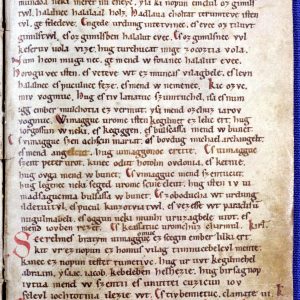 mundoa neki meret nu eneyc. ysa ki nopun emdul oz gimils
twl. halalnec halalaal holz. Hadlaua choltat terumteve isten
tvl. ge feledeve. Engede urdung intetvinec. es evec oz tiluvt
gimilstwl. es oz gimilsben halalut evec. Es oz gimilsnec vvl
keseruv uola vize. hug turchucat mige zocoztia vola.
Num heon muga nec. ge mend w foianec halalut evec.
Horogu vec isten. es veteve wt ez munkas vilagbele. es levn
halalnec es poculnec feze. es mend w nemenec. Kic ozvc.
miv vogmuc. Hug es tiv latiatuv szumtuchel. isa es num
igg ember mulchotia ez vermut. ysa mend ozchuz iarov
vogmuc. Wimagguc uromv isten kegilmet ez lelic ert. hug
iorgossun w neki. es kegiggen. es bulsassa mend w bunet.
Es vimagguc szen achscin mariat. es bovdug michael archangelt
es mend angelcut. hug uimaggonoc erette. Es uimagguc
szent peter urot. kinec odut hotolm ovdonia. es ketnie.
hug ovga mend w bunet. Es vimagguc mend szentucut.
hug legenec neki seged uromc scine eleut. hug isten iv ui
madsagucmia bulsassa w bunet. Es zoboducha wt urdung
ildetuitvl. es pucul kinzotviatwl. es vezesse wt paradisu
nugulmabeli. es oggun neki munhi uruzagbele utot. es
mend iovben rezet. Es keassatuc uromchuz charmul. kirl.
Scerelmes bratym uimagomuc ez scegin ember lilki ert.
kit vr ez nopun ez homus vilag timnucebelevl mente.
kinec ez nopun testet tumetivc. hug ur uvt kegilmehel
abraam. ysaac. iacob. kebeleben helhezie. hug birsagnop
ivtva mend w szentii es unuttei cuzicun iov
felevl iochtotnia ilezie wt. Es tivbennetuc. clamate iii.